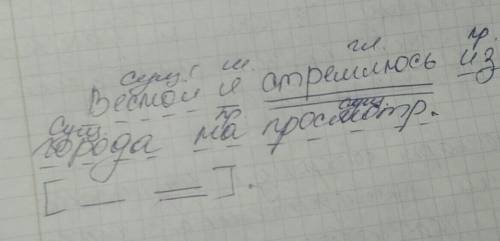 сущ. м. гл. пр.
Весной я стремлюсь из
сущ. пр. сущ.
города на просмотр.
[ — = ].